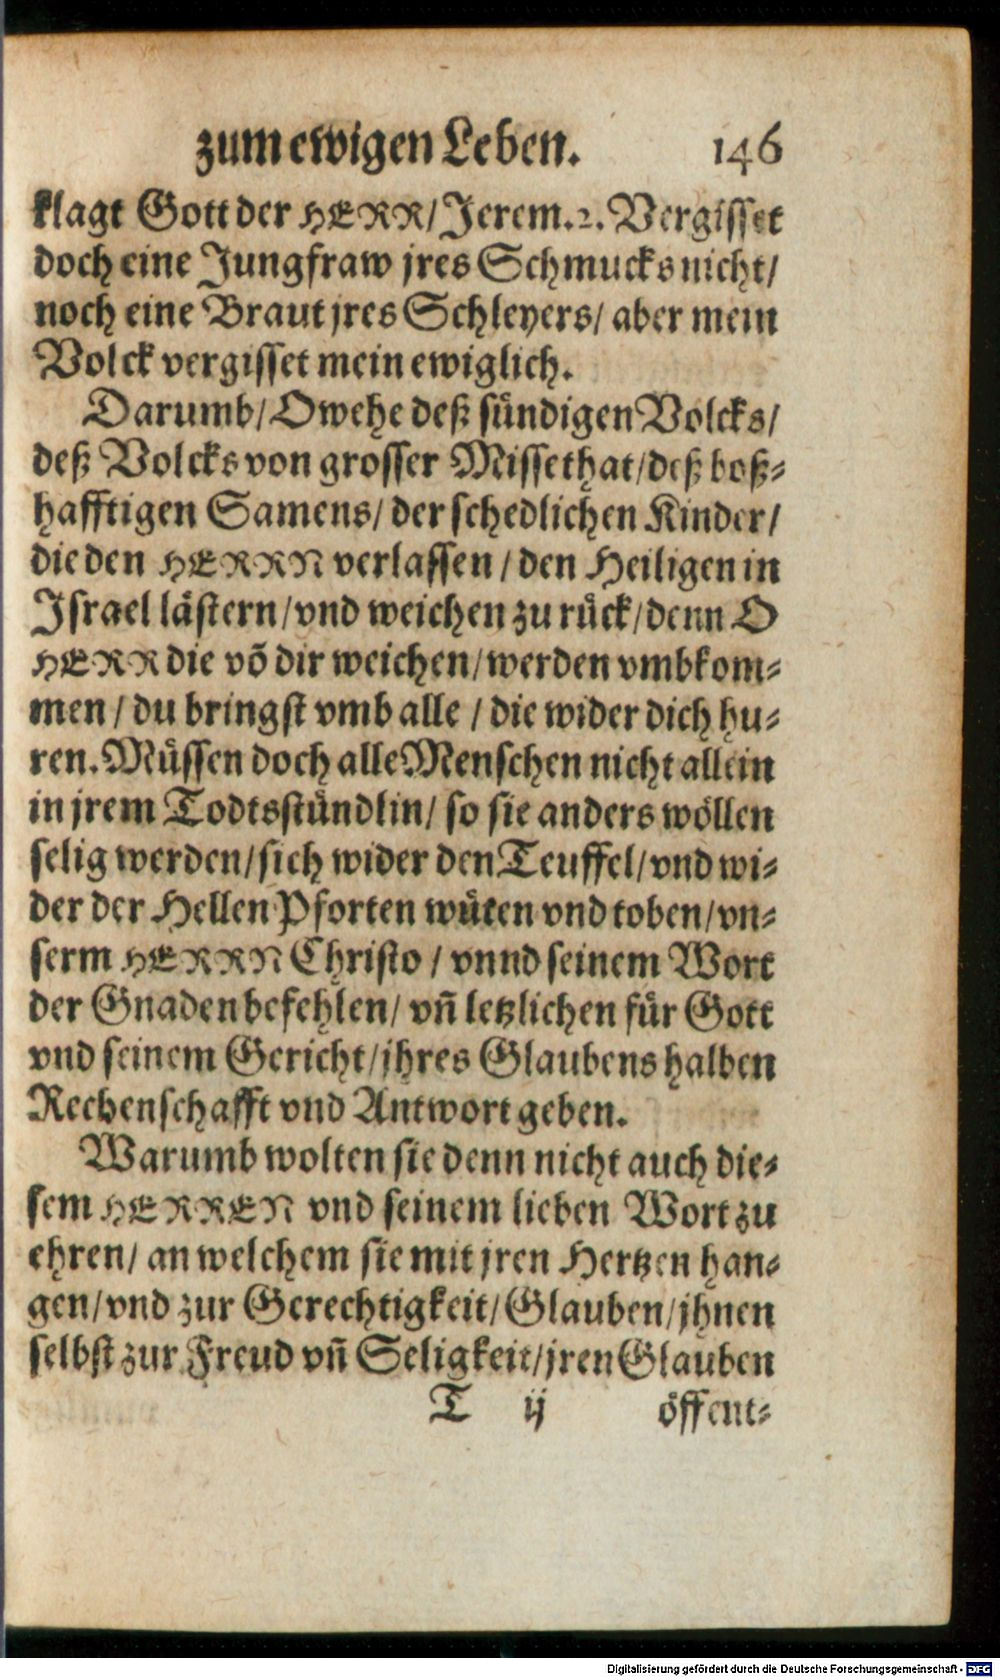 zum ewigen Leben. 146
klagt Gott der HERR/ Jerem. 2. Vergisset
doch eine Jungfraw jres Schmucks nicht/
noch eine Braut jres Schleyers/ aber mein
Volck vergisset mein ewiglich.
Darumb/ O wehe deß sündigen Volcks/
deß Volcks von grosser Missethat/ deß boß⸗
hafftigen Samens/ der schedlichen Kinder/
die den HERRN verlassen/ den Heiligen in
Israel lästern/ vnd weichen zu rück/ denn O
HERR die võ dir weichen/ werden vmbkom⸗
men/ du bringst vmb alle/ die wider dich hu⸗
ren. Müssen doch alle Menschen nicht allein
in jrem Todtsstündlin/ so sie anders wöllen
selig werden/ sich wider den Teuffel/ vnd wi⸗
der der Hellen Pforten wüten vnd toben/ vn⸗
serm HERRN Christo/ vnnd seinem Wort
der Gnaden befehlen/ vñ letzlichen für Gott
vnd seinem Gericht/ jhres Glaubens halben
Rechenschafft vnd Antwort geben.
Warumb wolten sie denn nicht auch die⸗
sem HERREN vnd seinem lieben Wort zu
ehren/ an welchem sie mit jren Hertzen han⸗
gen/ vnd zur Gerechtigkeit/ Glauben/ jhnen
selbst zur Freud vñ Seligkeit/ jren Glauben
T ij öffent⸗
Digitalisierung gefördert durch die Deutsche Forschungsgemeinschaft - DFG